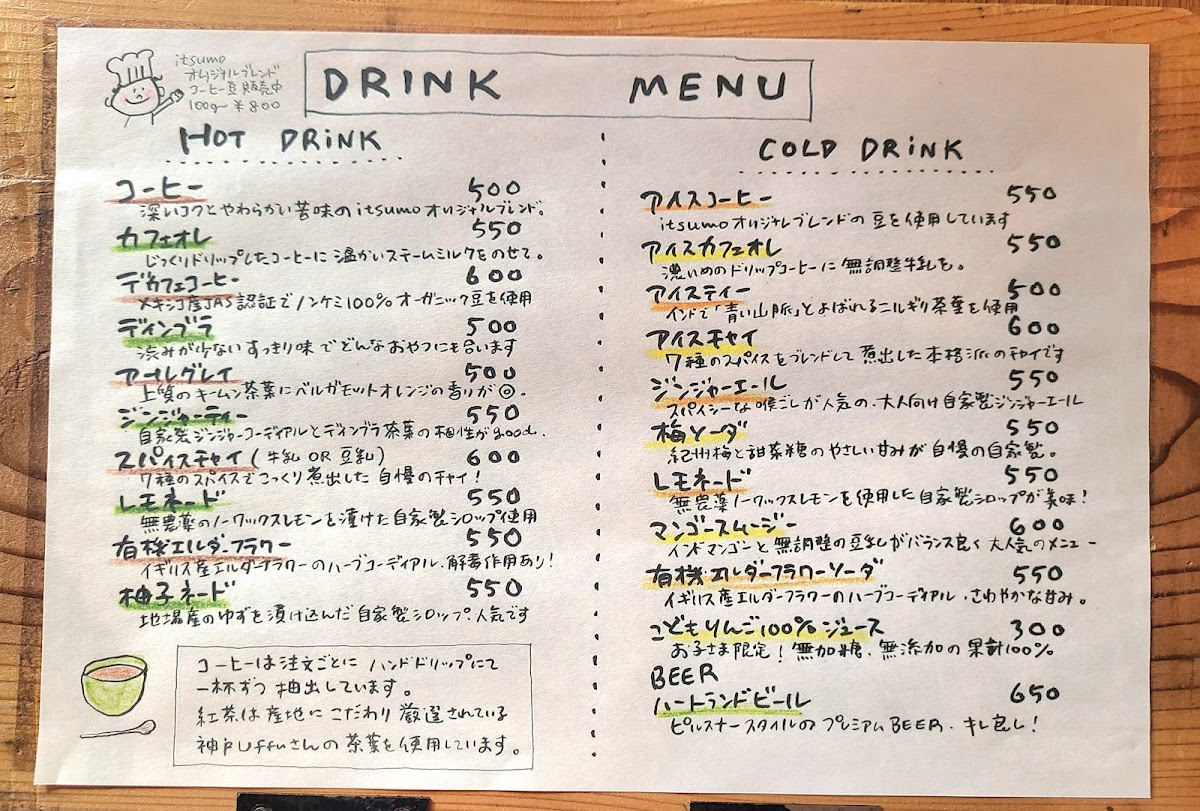 itsumo
オリジナルブレンド
コーヒー豆販売中
100g〜￥800
DRINK MENU
HOT DRINK
コーヒー 500
深いコクとやわらかい苦味のitsumoオリジナルブレンド。
カフェオレ 550
じっくりドリップしたコーヒーに温かいスチームミルクをのせて。
デカフェコーヒー 600
メキシコ産JAS認証でノンケミ100%オーガニック豆を使用
ディンブラ 500
渋みが少ないすっきり味でどんなおやつにも合います
アールグレイ 500
上質のキームン茶葉にベルガモットオレンジの香りが◎。
ジンジャーティー 550
自家製ジンジャーコーディアルとディンブラ茶葉の相性がgood.
スパイスチャイ(牛乳 OR 豆乳) 600
7種のスパイスでこっくり煮出した自慢のチャイ!
レモネード 550
無農薬のノーワックスレモンを漬けた自家製シロップ使用
有機エルダーフラワー 550
イギリス産エルダーフラワーのハーブコーディアル、解毒作用あり!
柚子ネード 550
地場産のゆずを漬け込んだ自家製シロップ、人気です
コーヒーは注文ごとにハンドドリップにて
一杯ずつ抽出しています。
紅茶は産地にこだわり厳選されている
神戸Uffuさんの茶葉を使用しています。
COLD DRINK
アイスコーヒー 550
itsumoオリジナルブレンドの豆を使用しています
アイスカフェオレ 550
濃いめのドリップコーヒーに無調整牛乳を。
アイスティー 500
インドで「青い山脈」とよばれるニルギリ茶葉を使用
アイスチャイ 600
7種のスパイスをブレンドして煮出した本格派のチャイです
ジンジャーエール 550
スパイシーな喉ごしが人気の、大人向け自家製ジンジャーエール
梅ソーダ 550
紀州梅と甜菜糖のやさしい甘みが自慢の自家製。
レモネード 550
無農薬ノーワックスレモンを使用した自家製シロップが美味!
マンゴースムージー 600
インドマンゴーと無調整の豆乳がバランス良く大人気のメニュー
有機エルダーフラワーソーダ 550
イギリス産エルダーフラワーのハーブコーディアル、さわやかな甘み。
こどもりんご100%ジュース 300
お子さま限定!無加糖、無添加の果汁100%
BEER
ハートランドビール 650
ピルスナースタイルのプレミアムBEER、キレ良し!